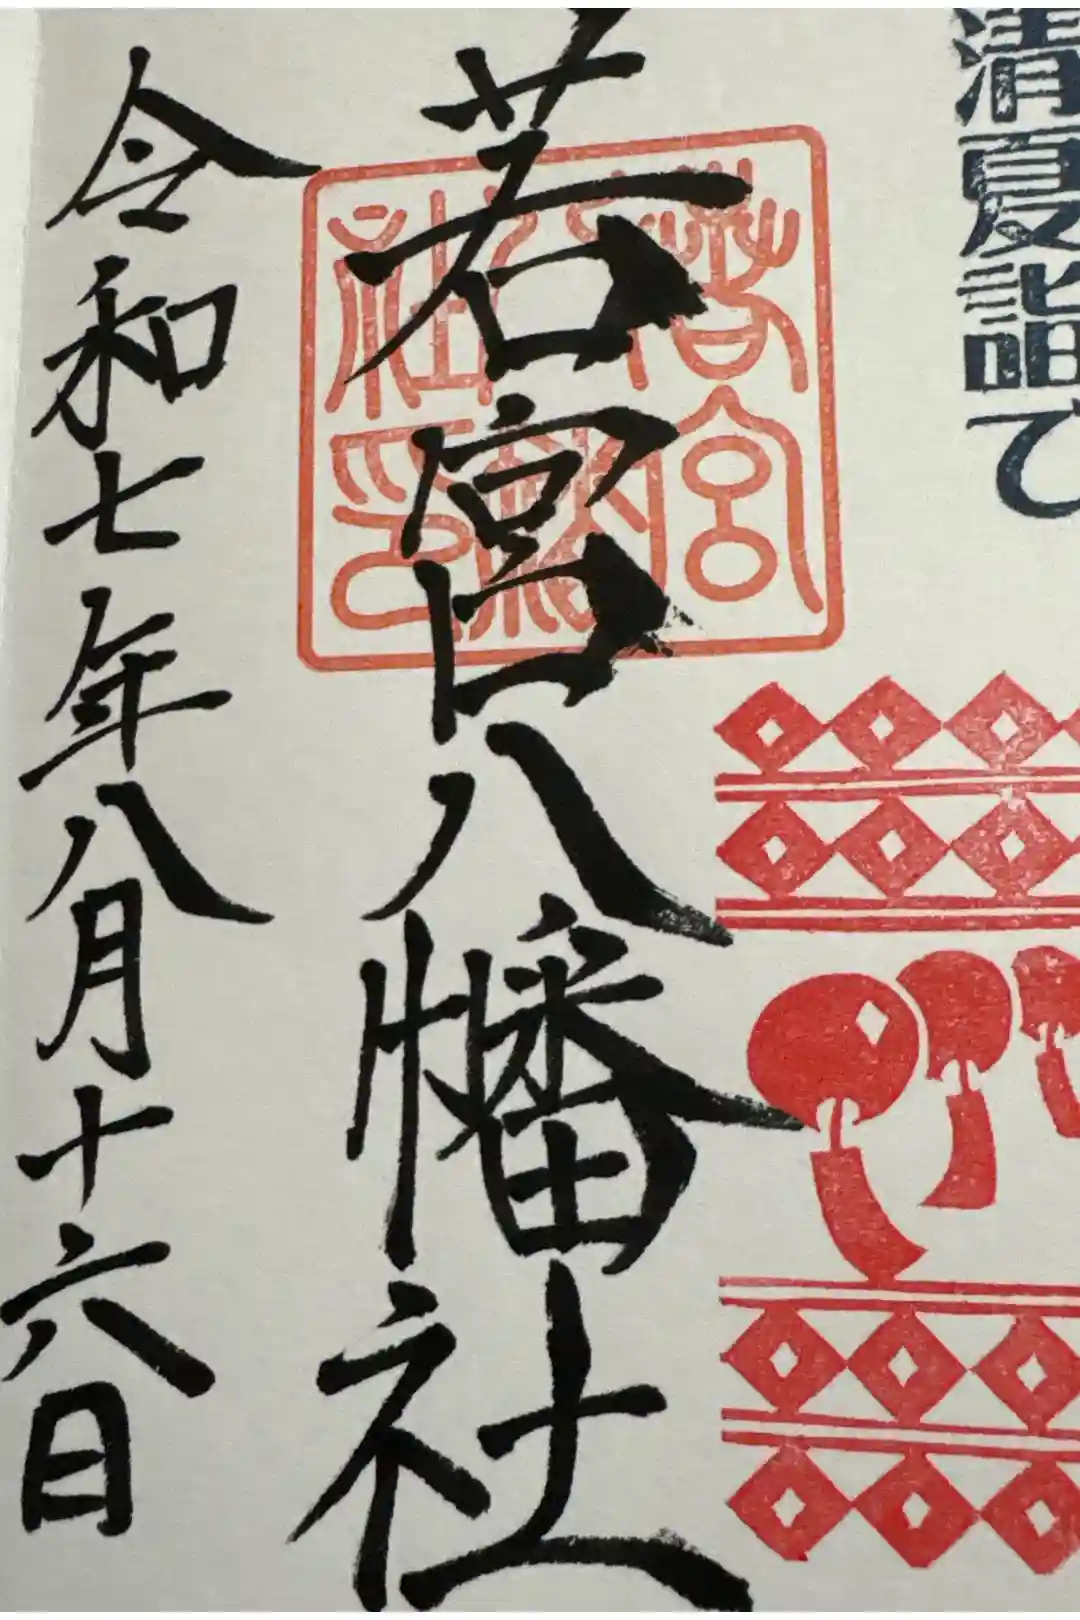 清夏詣で
若宮八幡社
若宮八幡社印
令和七年八月十六日